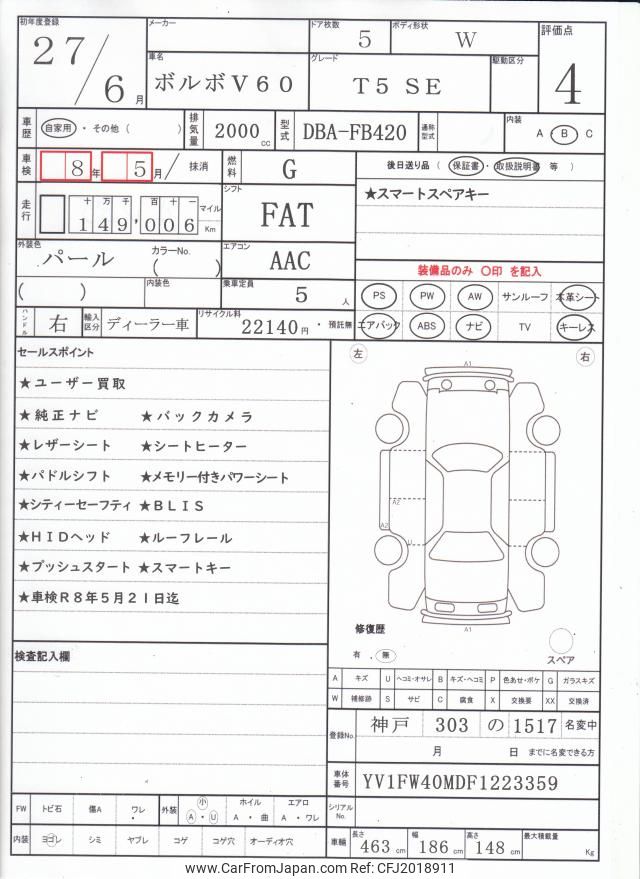 初年度登録
27/6月
メーカー
ドア枚数
5
ボディ形状
W
評価点
4
車名
ボルボV60
グレード
T5 SE
駆動区分
車歴
自家用・その他( )
排気量
2000cc
型式
DBA-FB420
通称型式
内装
A・B C
車検
8年5月/
抹消
燃料
G
後日送り品(保証書・取扱説明書 等)
走行
十万千百十一
149,006
マイル
Km
シフト
FAT
★スマートスペアキー
外装色
パール
カラーNo.
( )
エアコン
AAC
装備品のみ ○印 を記入
( )
内装色
乗車定員
5人
PS
PW
AW
サンルーフ
本革シート
ハンドル
右
輸入区分
ディーラー車
リサイクル料
22140円・預託無
エアバック
ABS
ナビ
TV
キーレス
セールスポイント
★ユーザー買取
★純正ナビ ★バックカメラ
★レザーシート ★シートヒーター
★パドルシフト ★メモリー付きパワーシート
★シティーセーフティ ★BLIS
★HIDヘッド ★ルーフレール
★プッシュスタート ★スマートキー
★車検R8年5月21日迄
左
右
A1
A2
A2
U
A1
修復歴
有.無
スペア
検査記入欄
A キズ U ヘコミ・オサレ B キズ・ヘコミ P 色あせ・ボケ G ガラスキズ
W 補修跡 S サビ C 腐食 X 交換要 XX 交換済
登録No.
神戸 303 の 1517 名変中
月 日 までに名変できる方
車体番号
YV1FW40MDF1223359
シリアルNo.
FW
トビ石
傷A
ワレ
外装
小
A・U
ホイル
A・曲
エアロ
A・ワレ
内装
ヨゴレ
シミ
ヤブレ
コゲ
コゲ穴
オーディオ穴
車輛
長さ
463cm
幅
186cm
高さ
148cm
最大積載量
Kg
www.CarFromJapan.com Ref: CFJ2018911